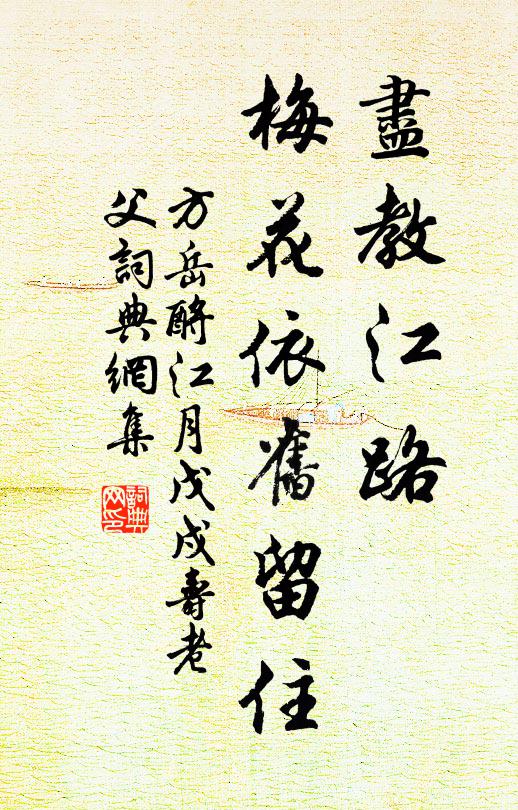 盡教江路
梅花依舊留住
方岳酹江月戊戌壽老
父詞典網集
詞典
网印